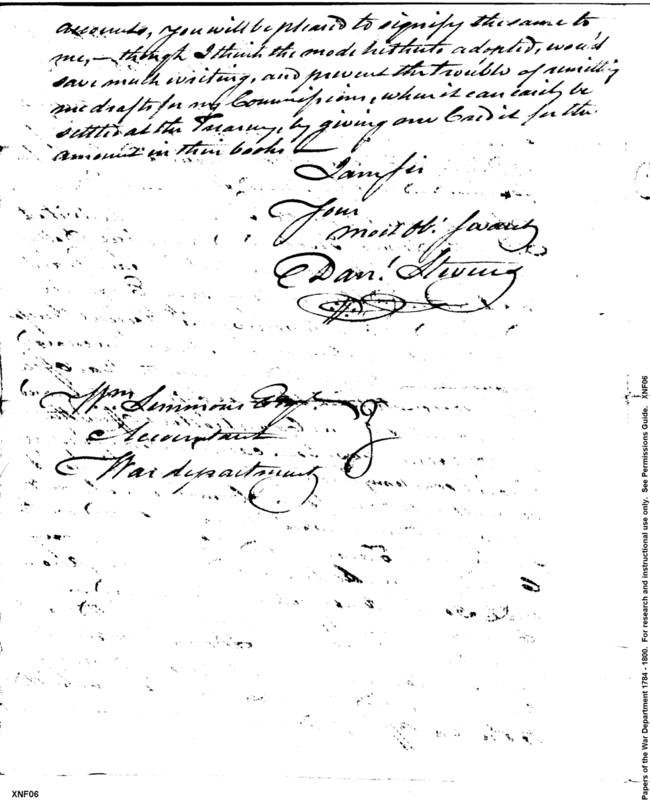 accounts, you will be pleased to signify the same to
me, — though I think the mode hitherto adopted, wou'd
save much writing, and prevent the trouble of remitting
me drafts for my Commissions, when it can easily be
settled at the Treasury, by giving me Credit for the
amount in their books —
I am Sir
Your
most Ob.t Servant
Dan.l Stevens
Wm Simmons Esq.r
Accountant
War department
Papers of the War Department 1784 - 1800. For research and instructional use only. See Permissions Guide. XNF06
XNF06